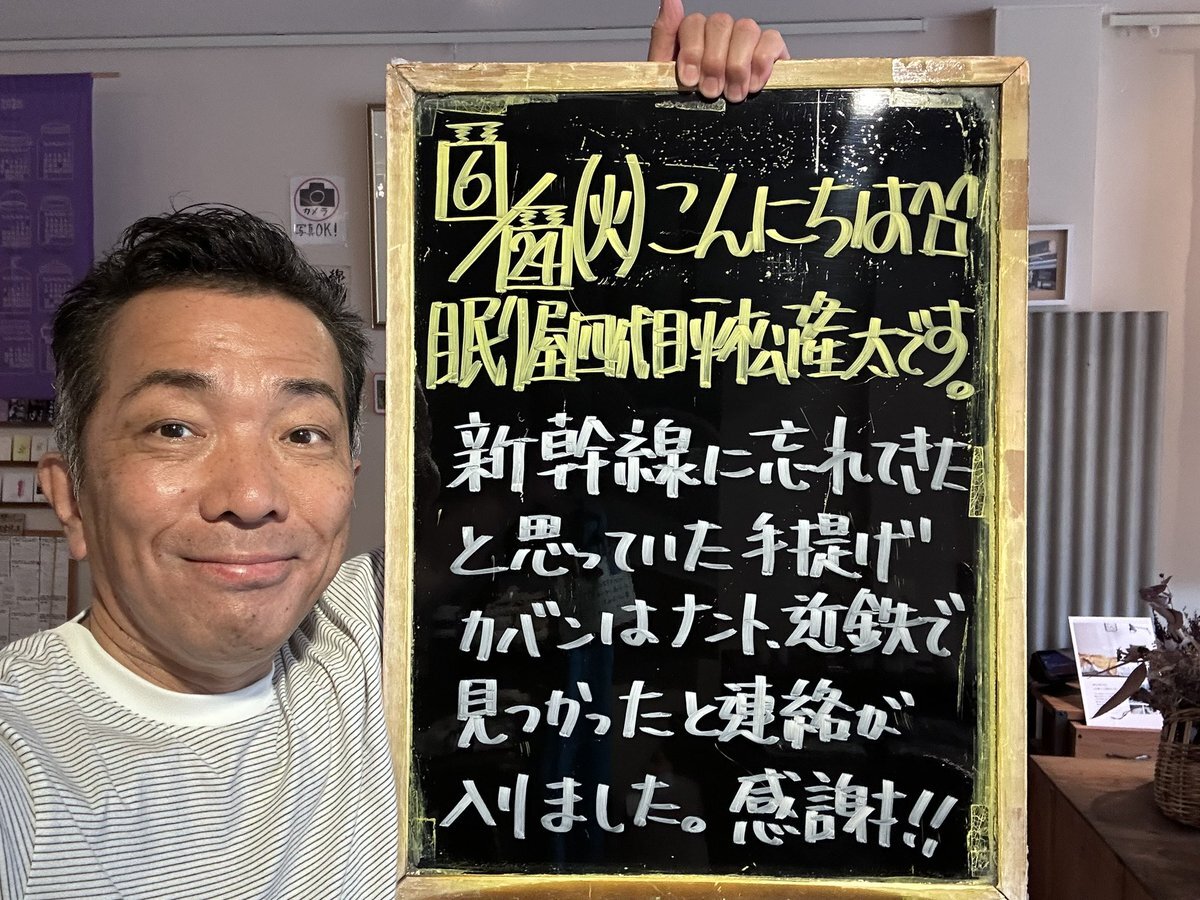 カメラ
写真OK!
6/24(火)こんにちは^^
眠り屋四代目平松産太です。
新幹線に忘れてきた
と思っていた手提げ
カバンはナント、近鉄で
見つかったと連絡が
入りました。感謝!!